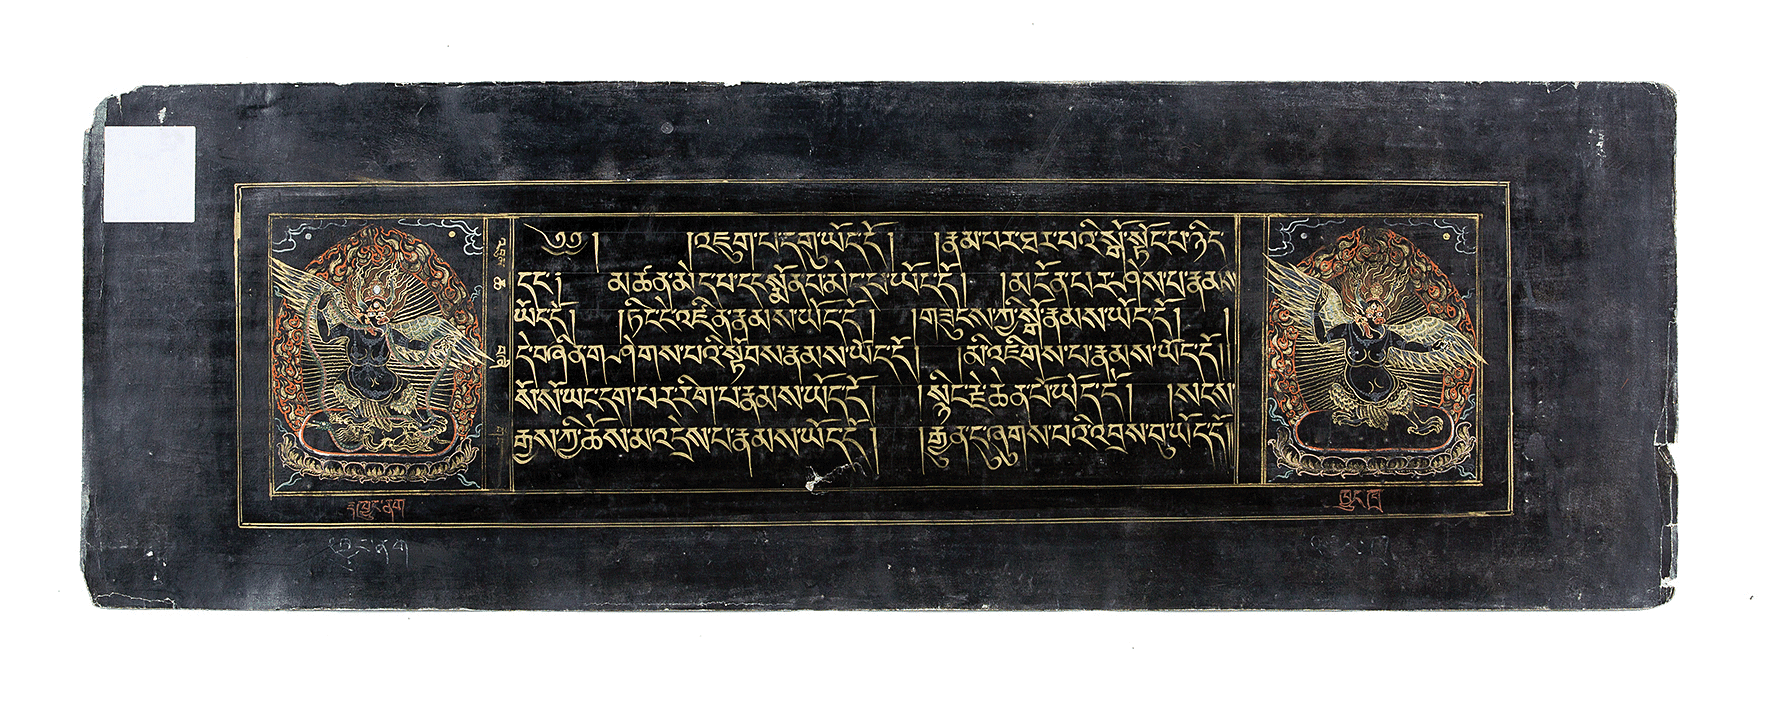 ༄༅། །འཇུག་པ་དགུ་ཡོད་དོ། །རྣམ་པར་ཐར་པའི་སྒོ་སྟོང་པ་ཉིད་
དང་། མཚན་མེད་པ་དང་སྨོན་པ་མེད་པ་ཡོད་དོ། །མངོན་པར་ཤེས་པ་རྣམས་
ཡོད་དོ། །ཏིང་ངེ་འཛིན་རྣམས་ཡོད་དོ། །གཟུངས་ཀྱི་སྒོ་རྣམས་ཡོད་དོ། །
དེ་བཞིན་གཤེགས་པའི་སྟོབས་རྣམས་ཡོད་དོ། །མི་འཇིགས་པ་རྣམས་ཡོད་དོ།།
སོ་སོ་ཡང་དག་པར་རིག་པ་རྣམས་ཡོད་དོ། །སྙིང་རྗེ་ཆེན་པོ་ཡོད་དོ། །སངས་
རྒྱས་ཀྱི་ཆོས་མ་འདྲེས་པ་རྣམས་ཡོད་དོ། །རྒྱུན་དུ་ཞུགས་པའི་འབྲས་བུ་ཡོད་དོ།།
ཁྱུང་ནག
ཁྱུང་ཁྲ